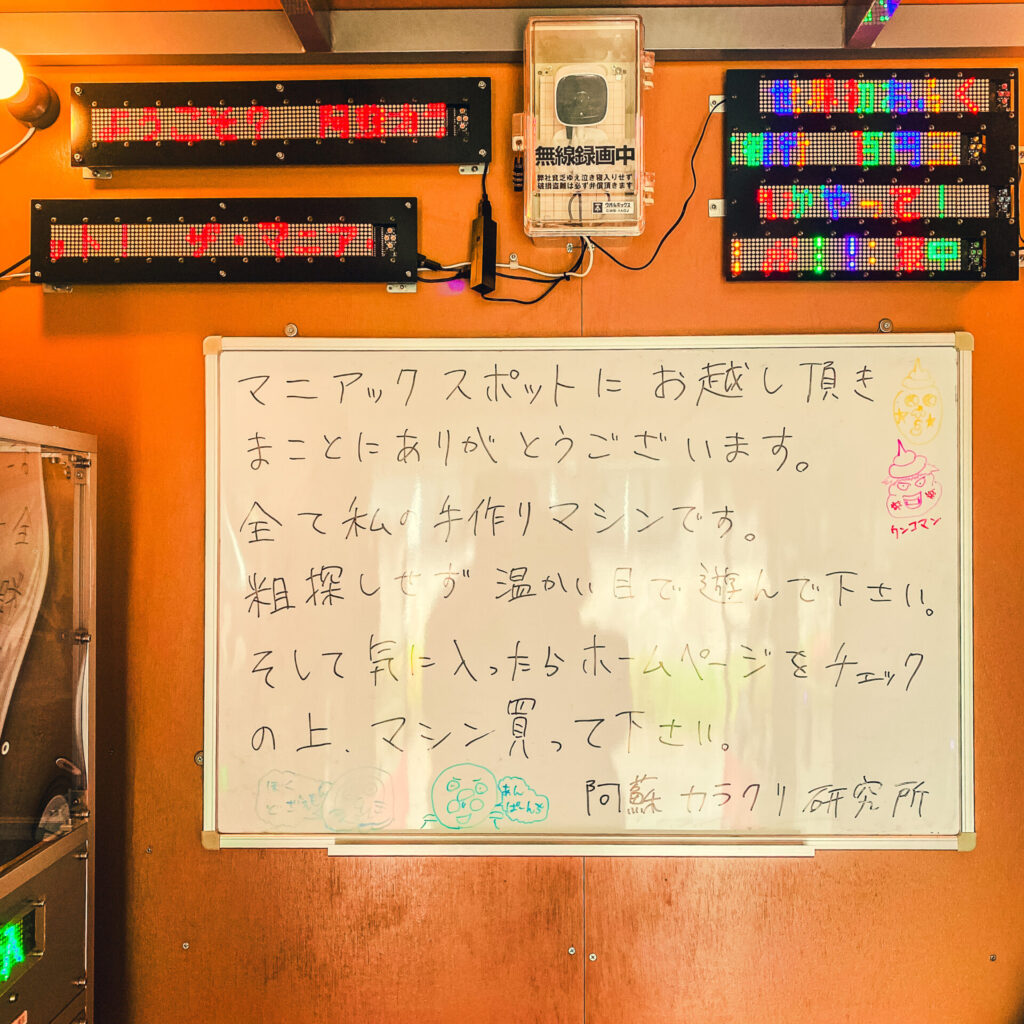 ようこそ?
ット! ザ・マニア
無線録画中
弊社貧乏ゆえ泣き寝入りせず
破損盗難は必ず弁償頂きます
百円
中
マニアックスポットに お越し頂き
まことにありがとうございます。
全て私の手作りマシンです。
粗探しせず 温かい目で遊んで下さい。
そして気に入ったらホームページをチェック
の上、マシン買って下さい。
阿蘇カラクリ研究所
ウンコマン
ぼく
あん
ぱーんち